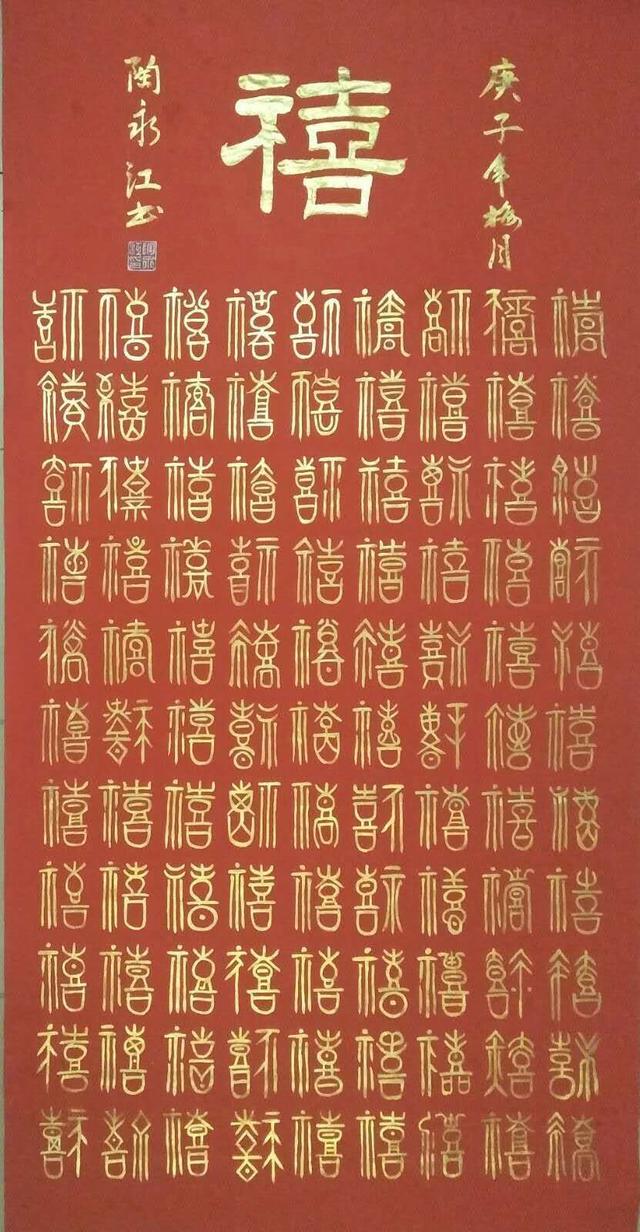 庚子年梅月
禧
陶永江书
禧禧禧禧禧禧禧禧禧禧禧
禧禧禧禧禧禧禧禧禧禧禧
禧禧禧禧禧禧禧禧禧禧禧
禧禧禧禧禧禧禧禧禧禧禧
禧禧禧禧禧禧禧禧禧禧禧
禧禧禧禧禧禧禧禧禧禧禧
禧禧禧禧禧禧禧禧禧禧禧
禧禧禧禧禧禧禧禧禧禧禧
禧禧禧禧禧禧禧禧禧禧禧